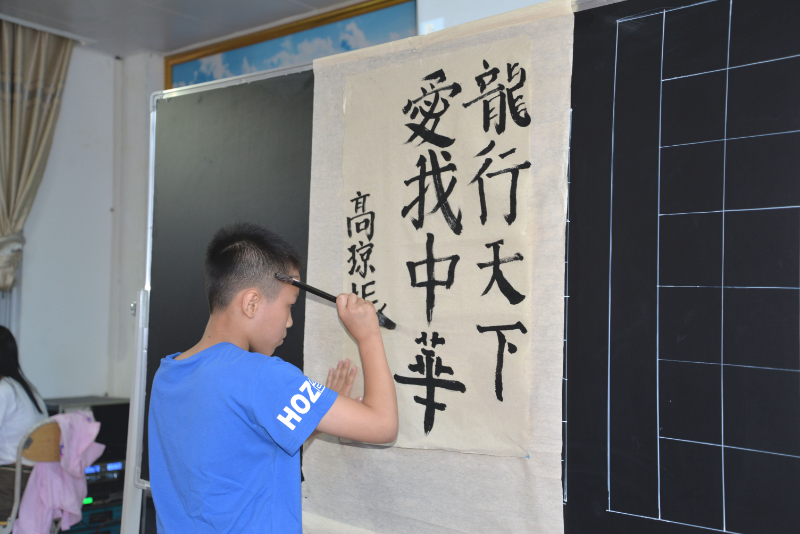 龍行天下
愛我中華
高琼
HOZ